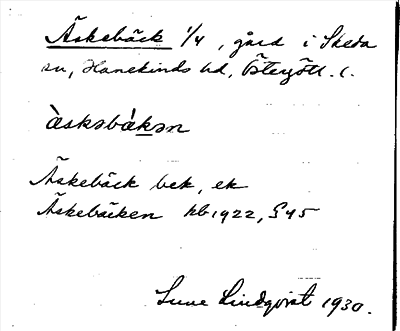 Äskebäck 1/4, gård i Skeda
sn, Hanekinds hd, Östergötl. l.
àskəbákən
Äskebäck bek, ek
Äskebäcken kb 1922, § 45
Sune Lindqvist 1930.